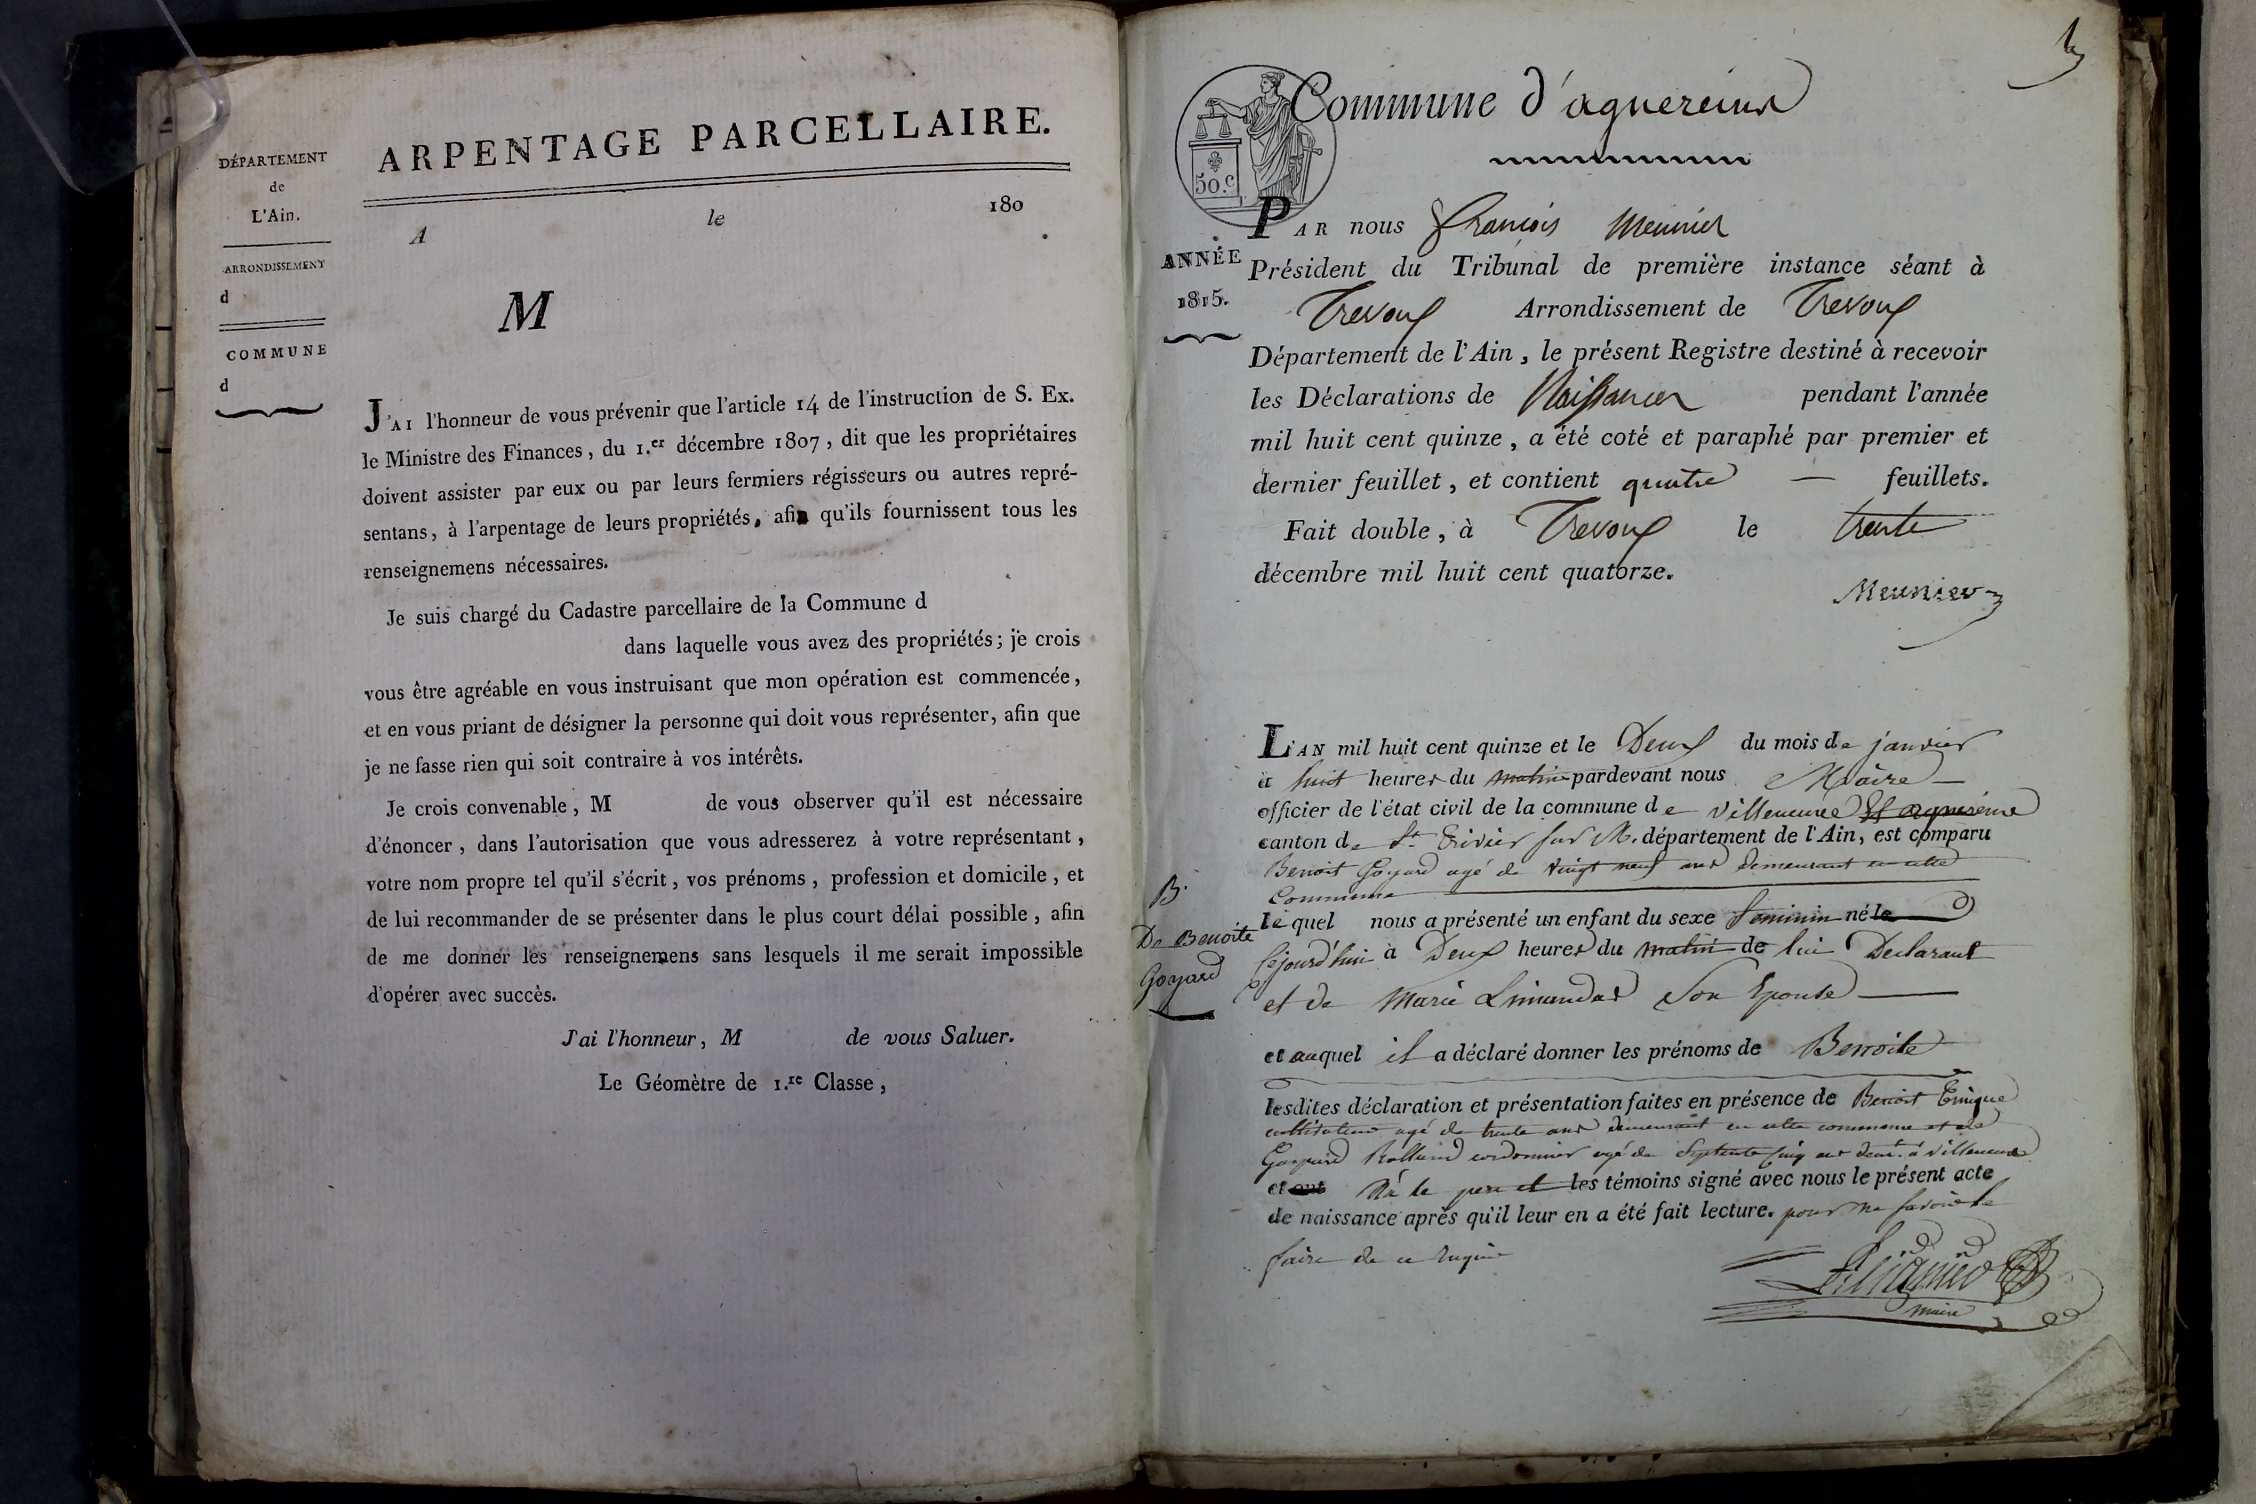 DÉPARTEMENT
de
L'Ain.
ARRONDISSEMENT
d
COMMUNE
d
ARPENTAGE PARCELLAIRE.
A le 180
M
J'AI l'honneur de vous prévenir que l'article 14 de l'instruction de S. Ex.
le Ministre des Finances, du 1.er décembre 1807, dit que les propriétaires
doivent assister par eux ou par leurs fermiers régisseurs ou autres repré-
sentans, à l'arpentage de leurs propriétés, afin qu'ils fournissent tous les
renseignemens nécessaires.
Je suis chargé du Cadastre parcellaire de la Commune d
dans laquelle vous avez des propriétés; je crois
vous être agréable en vous instruisant que mon opération est commencée,
et en vous priant de désigner la personne qui doit vous représenter, afin que
je ne fasse rien qui soit contraire à vos intérêts.
Je crois convenable, M de vous observer qu'il est nécessaire
d'énoncer, dans l'autorisation que vous adresserez à votre représentant,
votre nom propre tel qu'il s'écrit, vos prénoms, profession et domicile, et
de lui recommander de se présenter dans le plus court délai possible, afin
de me donner les renseignemens sans lesquels il me serait impossible
d'opérer avec succès.
J'ai l'honneur, M de vous Saluer.
Le Géomètre de 1.re Classe,
Commune d'agnereins
50.c
ANNÉE
1815.
PAR nous François Meunier
Président du Tribunal de première instance séant à
Trevoux Arrondissement de Trevoux
Département de l'Ain, le présent Registre destiné à recevoir
les Déclarations de Naissances pendant l'année
mil huit cent quinze, a été coté et paraphé par premier et
dernier feuillet, et contient quatre — feuillets.
Fait double, à Trevoux le trente
décembre mil huit cent quatorze.
Meunier
L'AN mil huit cent quinze et le Deux du mois de janvier
à huit heures du matin pardevant nous Maire
officier de l'état civil de la commune de villeneuve
canton de St. Trivier sur M. département de l'Ain, est comparu
Benoit Goyard agé de vingt neuf ans demeurant en cette
Commune
B.
De Benoite
Goyard
lequel nous a présenté un enfant du sexe feminin né le
cejourd'hui à Deux heures du matin de lui Declarant
et de Marie Limandas son Epouse
et auquel il a déclaré donner les prénoms de Benoite
lesdites déclaration et présentation faites en présence de Benoit
cultivateur agé de trente ans demeurant en cette commune et de
Gaspard Rolland cordonnier agé de Septente cinq ans dem.t à villeneuve
et ont le pere et les témoins signé avec nous le présent acte
de naissance après qu'il leur en a été fait lecture. pour ne savoir le
faire de ce requis
maire